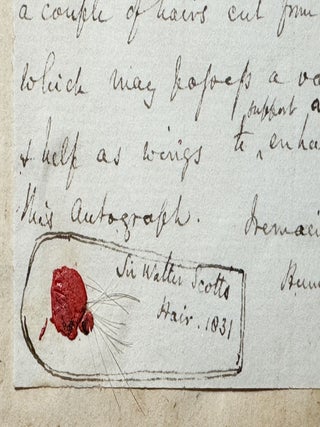 a couple of hairs cut from
which may possess a va
support a
& help as wings to ‸ enha
this Autograph. I remai
Hum
Sir Walter Scotts
Hair. 1831